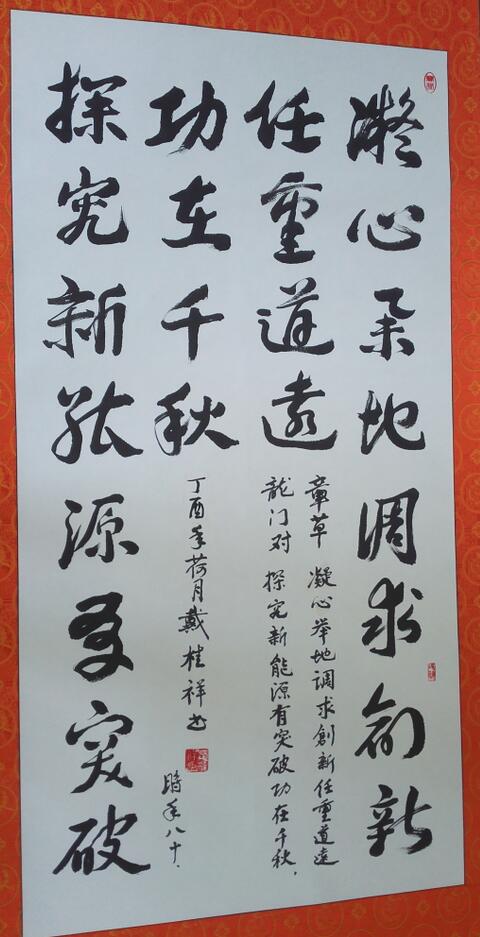 凝心举地调求創新
任重道遠
探究新能源有突破
功在千秋
章草 凝心举地调求創新任重道遠
龙门对 探究新能源有突破功在千秋，
丁酉年荷月戴桂祥书
時年八十.